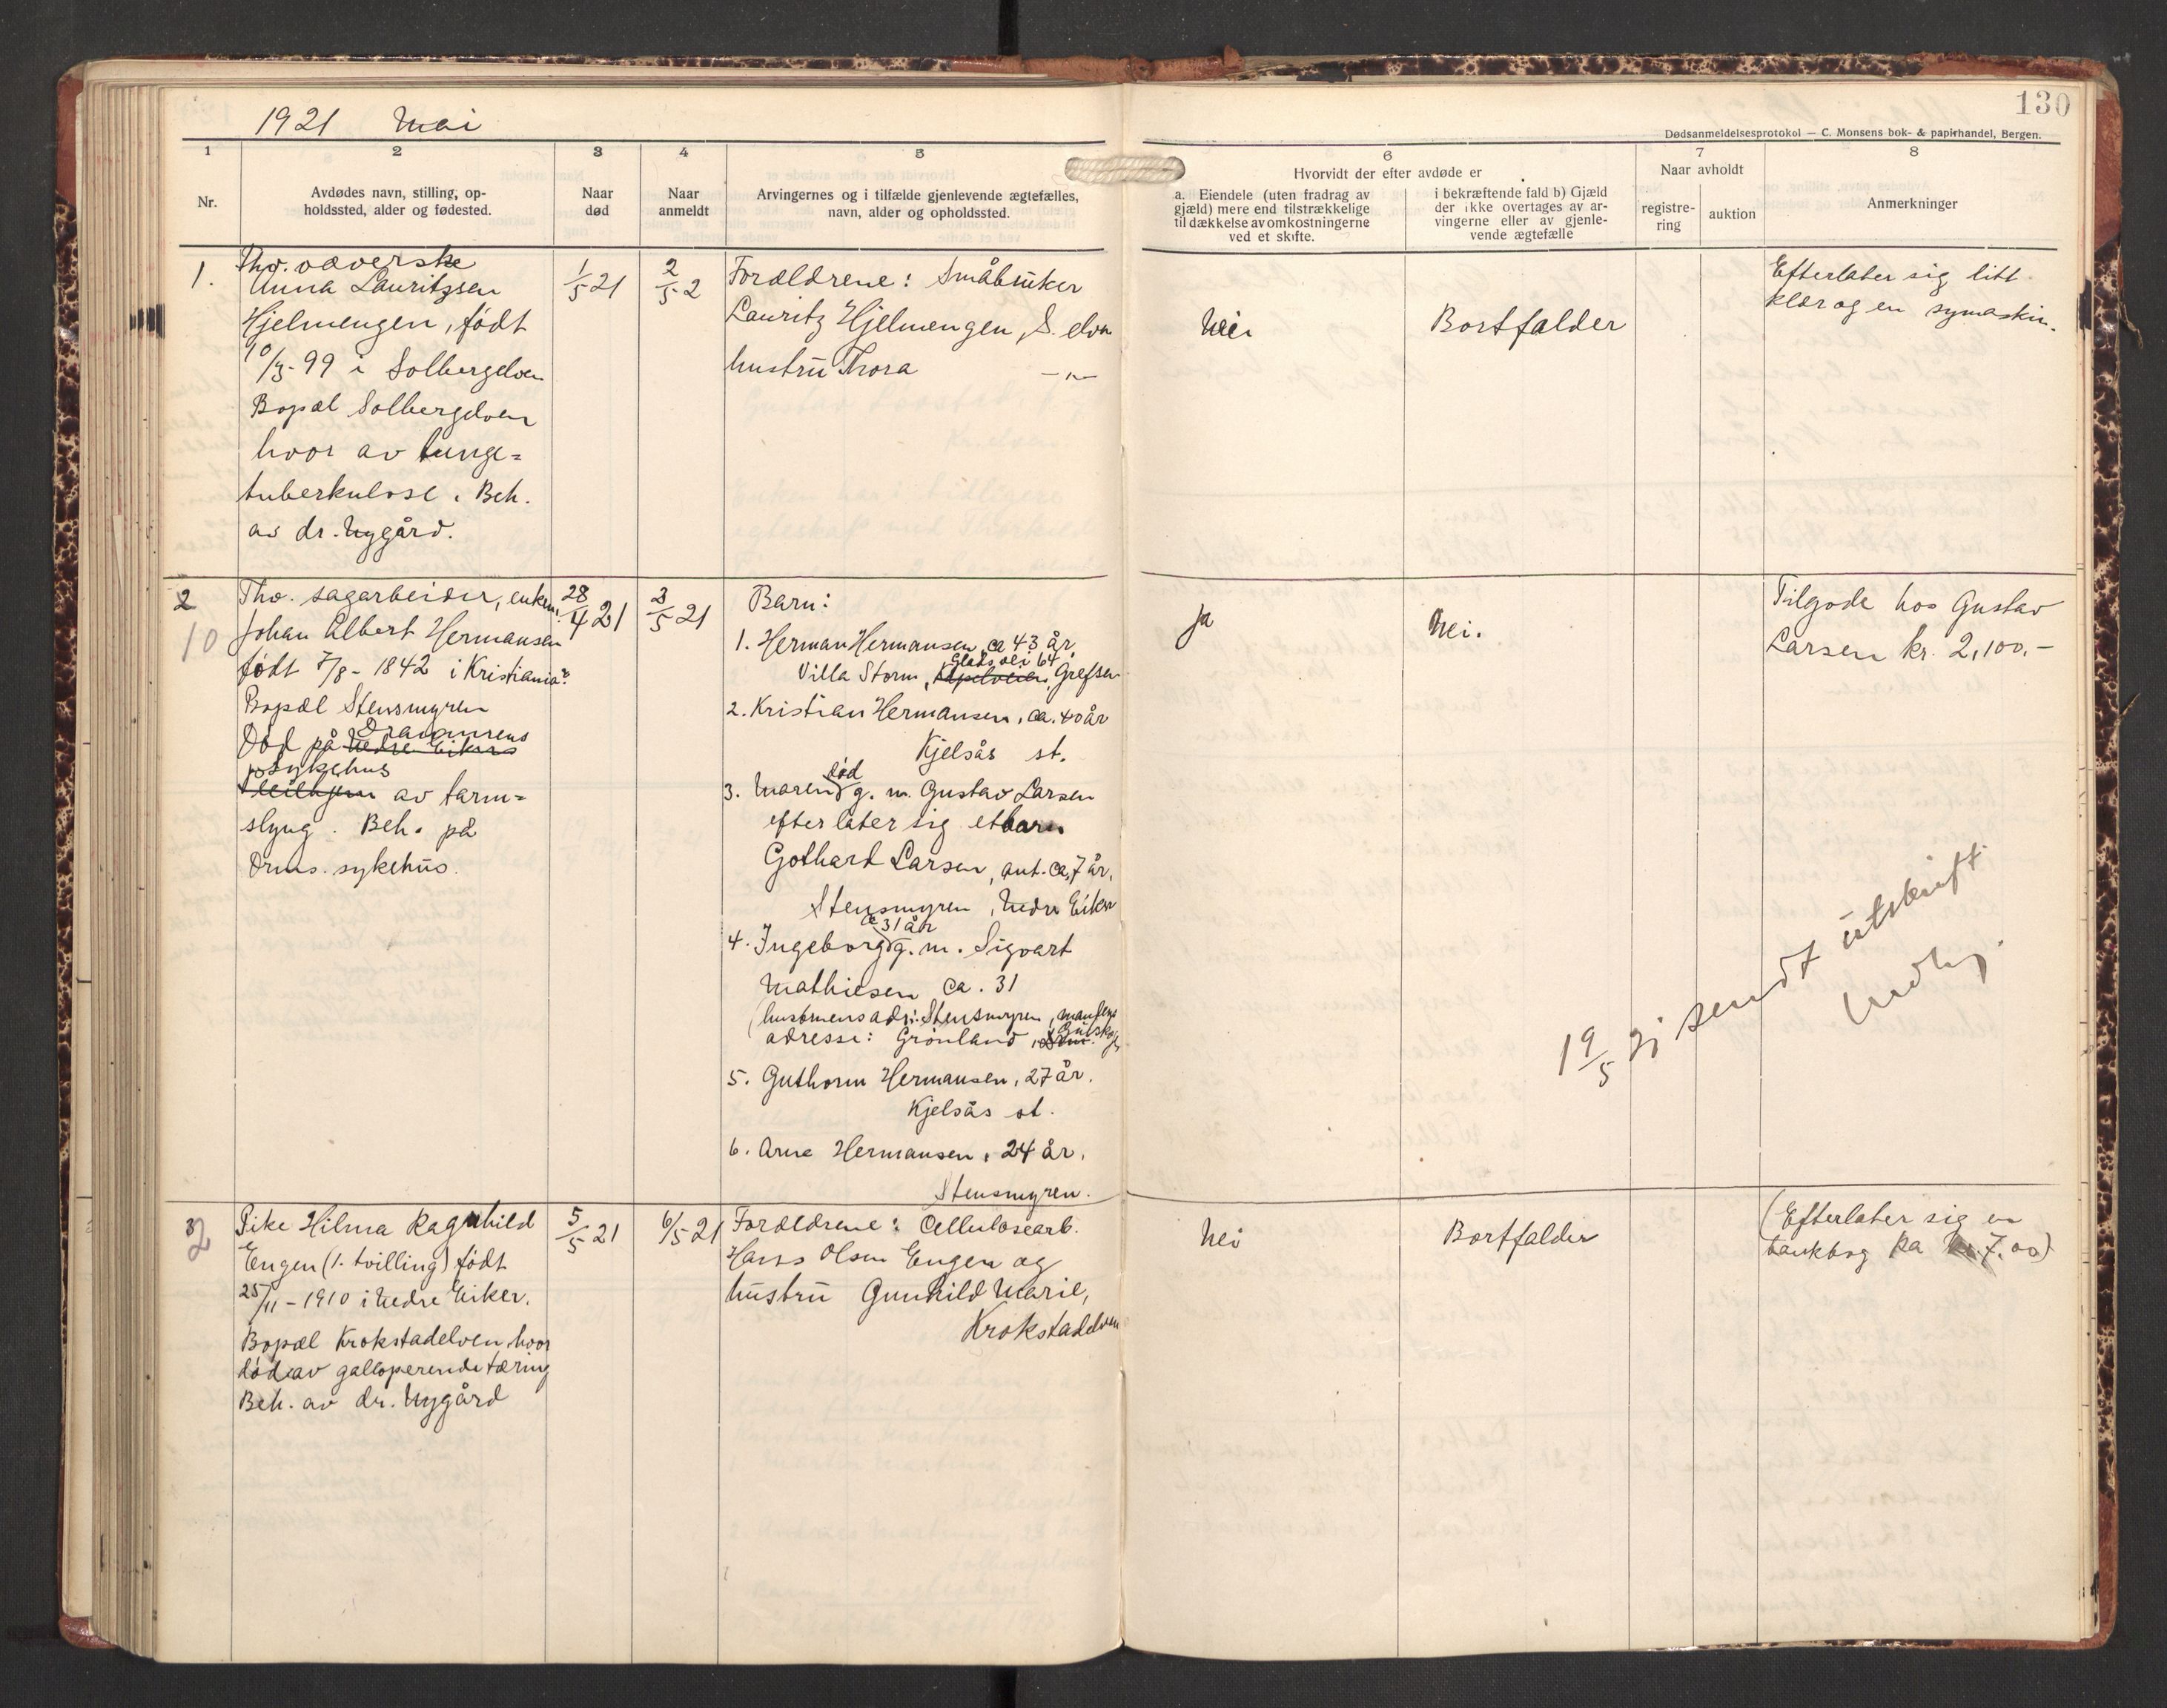 1921 Mai
130
Dødsanmeldelsesprotokol — C. Monsens bok- & papirhandel, Bergen.
1
2
3
4
5
6
7
8
Nr.
Avdødes navn, stilling, op-
holdssted, alder og fødested.
Naar
død
Naar
anmeldt
Arvingernes og i tilfælde gjenlevende ægtefælles,
navn, alder og opholdssted.
Hvorvidt der efter avdøde er
a. Eiendele (uten fradrag av
gjæld) mere end tilstrækkelige
til dækkelse av omkostningerne
ved et skifte.
i bekræftende fald b) Gjæld
der ikke overtages av ar-
vingerne eller av gjenle-
vende ægtefælle
Naar avholdt
registre-
ring
auktion
Anmerkninger
1.
Fhv. væverske
Anna Lauritzsen
Hjelmengen, født
10/3-99 i Solbergelven
Bopæl Solbergelven
hvor av lunge=
tuberkulose. Beh.
av dr. Nygård.
1/5 21
2/5 2
Forældrene: Småbruker
Lauritz Hjelmengen, S. elven
hustru Thora —"—
Nei
Bortfalder
Efterlater sig litt
klær og en symaskin.
2
10
Fhv. sagarbeider, enkem.
Johan Albert Hermansen
født 7/8-1842 i Kristiania?
Bopæl Stensmyren
Drammens
Død på Nedre Eikers
sykehus
pleiehjem av tarm=
slyng. Beh. på
Drms. sykehus.
28/4 21
3/5 21
Barn:
1. Herman Hermansen, ca 43 år,
Glads vei 64
Villa Storm, Kapelveien, Grefsen
2. Kristian Hermansen, ca. 40 år
Kjelsås st.
død
3. Maren g. m. Gustav Larsen
efterlater sig et barn
Gothard Larsen, ant. ca, 7 år,
Stensmyren, Nedre Eiker
ca 31 år
4. Ingeborg g. m. Sigvart
Mathiesen ca. 31
(hustruens adr: Stensmyren, mandens
adresse: Grønland, Drm. Gulskogen
5. Guthorm Hermansen, 27 år.
Kjelsås st.
6. Arne Hermansen, 24 år,
Stensmyren.
Ja
Nei.
Tilgode hos Gustav
Larsen kr. 2,100.-
19/5 21 sendt utskrift
3
2
Pike Hilma Ragnhild
Engen (1. tvilling) født
25/11-1910 i Nedre Eiker.
Bopæl Krokstadelven hvor
død av galloperende tæring
Beh. av dr. Nygård
5/5 21
6/5 21
Forældrene: Cellulosearb.
Hans Olsen Engen og
hustru Gunhild Marie,
Krokstadelven
Nei
Bortfalder
(Efterlater sig en
bankbog ka kr. 7.00)